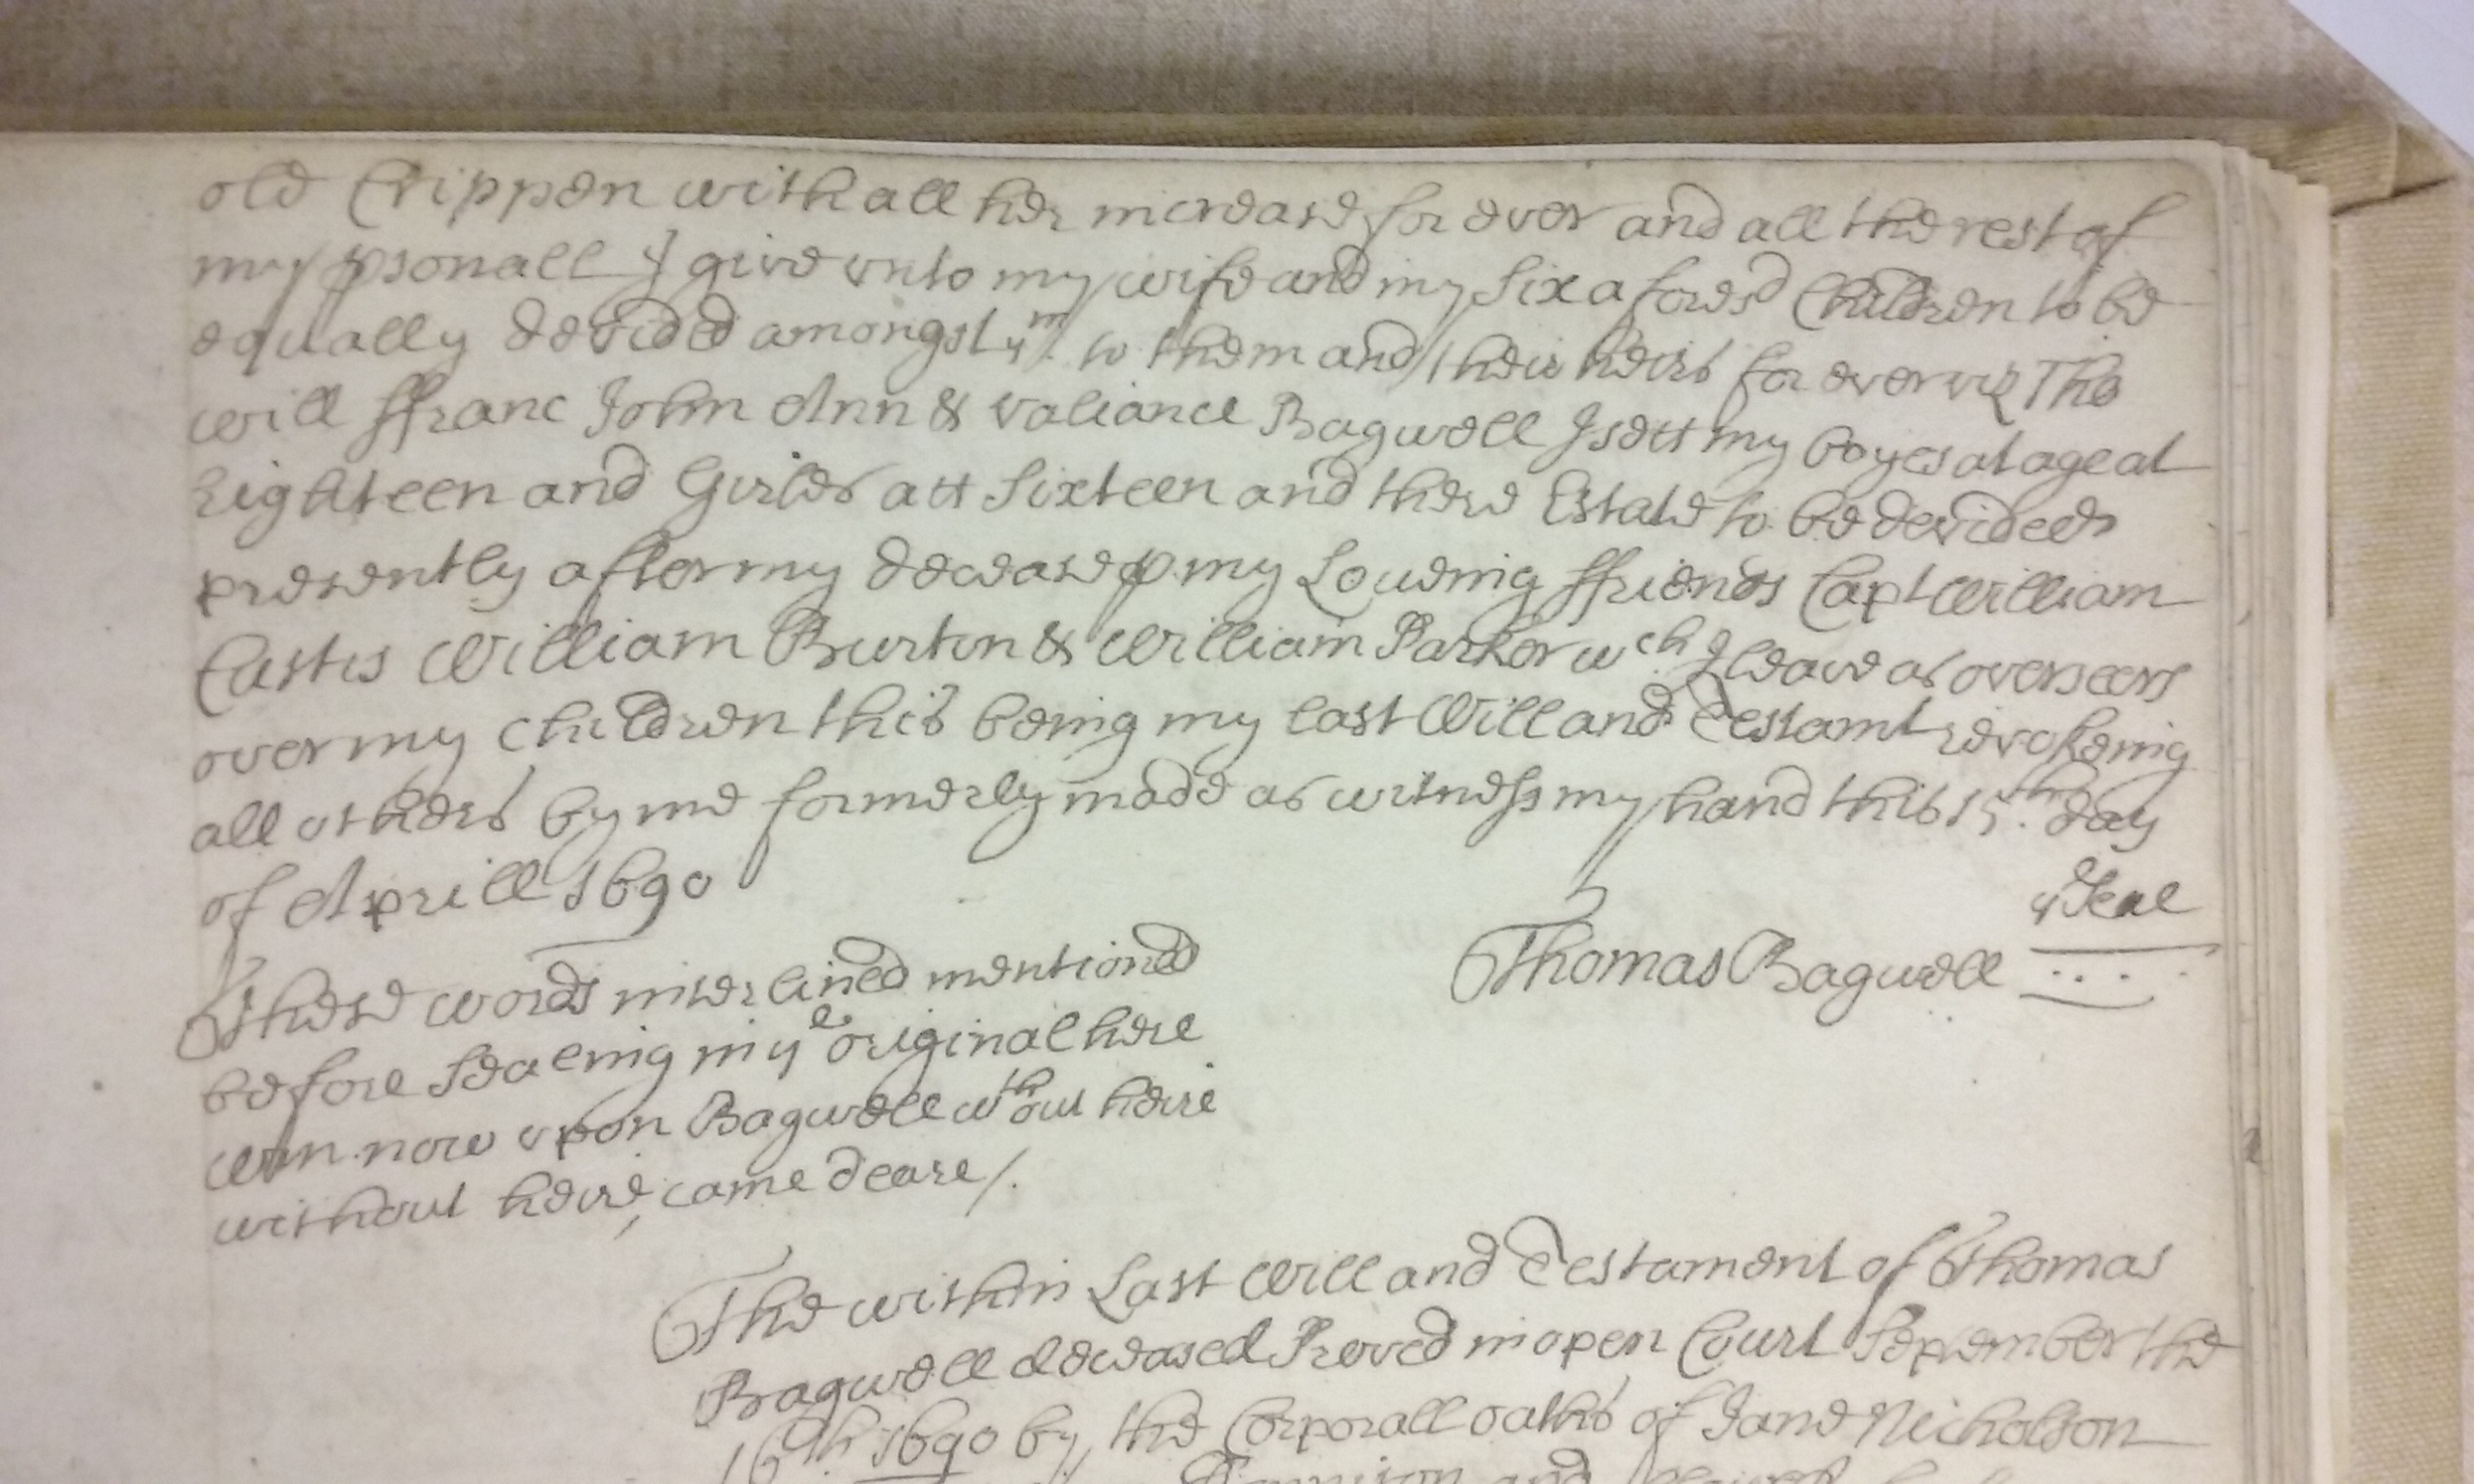 old Crippen with all her increase for ever and all the rest of
my psonall I give unto my wife and my Six afores'd Children to be
equally devided amongst ym to them and their heirs for ever viz Tho
will ffranc John Ann & valiance Bagwell I sett my boyes at age at
Eighteen and Girles att Sixteen and there Estate to be devideed
presently after my decease p my Loveing ffriends Capt William
Custis William Burton & William Parker wch I leave as overseers
over my children this being my last Will and Testamt revokeing
all others by me formerly made as witness my hand this 15th day
of Aprill 1690
Thomas Bagwell ye Seal
These words interlined mentioned
before Sealeing in ye original here
now upon Bagwell without heire
without heire, came deare/.
The within Last Will and Testament of Thomas
Bagwell deceased Proved in open Court September the
16th 1690 by the Corporall oathes of Jane Nicholson
and